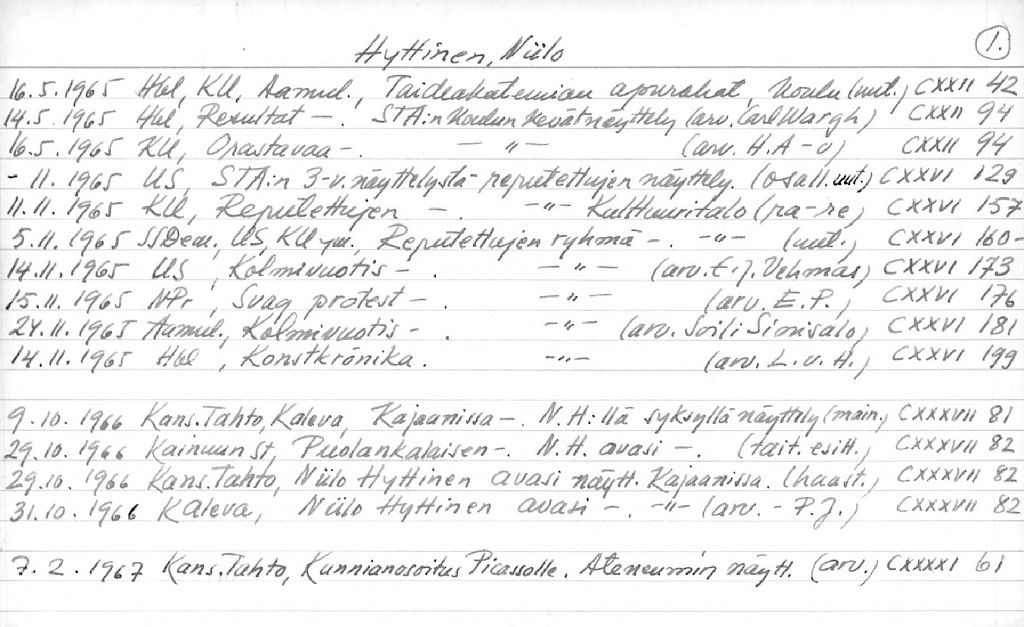 1.
Hyttinen, Niilo
16.5.1965 Hbl, KU, Aamul., Taideakatemian apurahat, koulu (uut.) CXXII 42
14.5.1965 Hbl, Resultat -. STA:n koulun kevätnäyttely (arv. Carl Wargh) CXXII 94
16.5.1965 KU, Opastavaa -. — " — (arv. H.A-v) CXXII 94
- 11.1965 US, STA:n 3-v. näyttelystä reputettujen näyttely. (osall. uut.) CXXVI 129
11.11.1965 KU, Reputettujen -. -"- Kulttuuritalo (ra-re) CXXVI 157
5.11.1965 SSDem, US, KU ym. Reputettujen ryhmä -. -"- (uut.) CXXVI 160-
14.11.1965 US, Kolmivuotis -. — " — (arv. E.J. Vehmas) CXXVI 173
15.11.1965 NPr, Svag protest -. — " — (arv. E.P.) CXXVI 176
24.11.1965 Aamul., Kolmivuotis -. — " — (arv. Soili Sinisalo) CXXVI 181
14.11.1965 Hbl, Konstkrönika. -"- (arv. L.v.H.) CXXVI 199
9.10.1966 Kans.Tahto, Kaleva, Kajaanissa -. N.H:llä syksyllä näyttely (main.) CXXXVII 81
29.10.1966 Kainuun St, Puolankalaisen -. N.H. avasi -. (tait. esitt.) CXXXVII 82
29.10.1966 Kans.Tahto, Niilo Hyttinen avasi näytt. Kajaanissa. (haast.) CXXXVII 82
31.10.1966 Kaleva, Niilo Hyttinen avasi -. -"- (arv. - P.J.) CXXXVII 82
7.2.1967 Kans.Tahto, Kunnianosoitus Picassolle. Ateneumin näytt. (arv.) CXXXXI 61